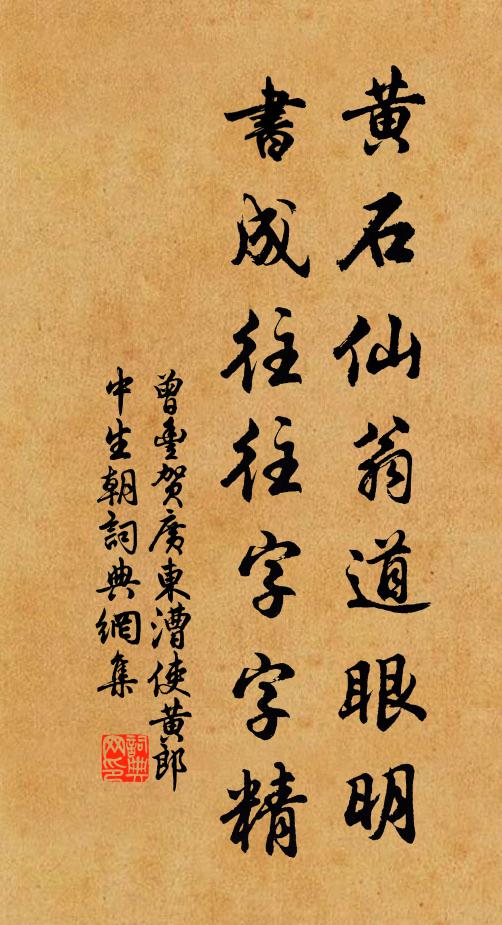 黄石仙翁道眼明
書成往往字字精
曾豐賀廣東漕使黄郎
中生朝詞典網集
詞典
网印